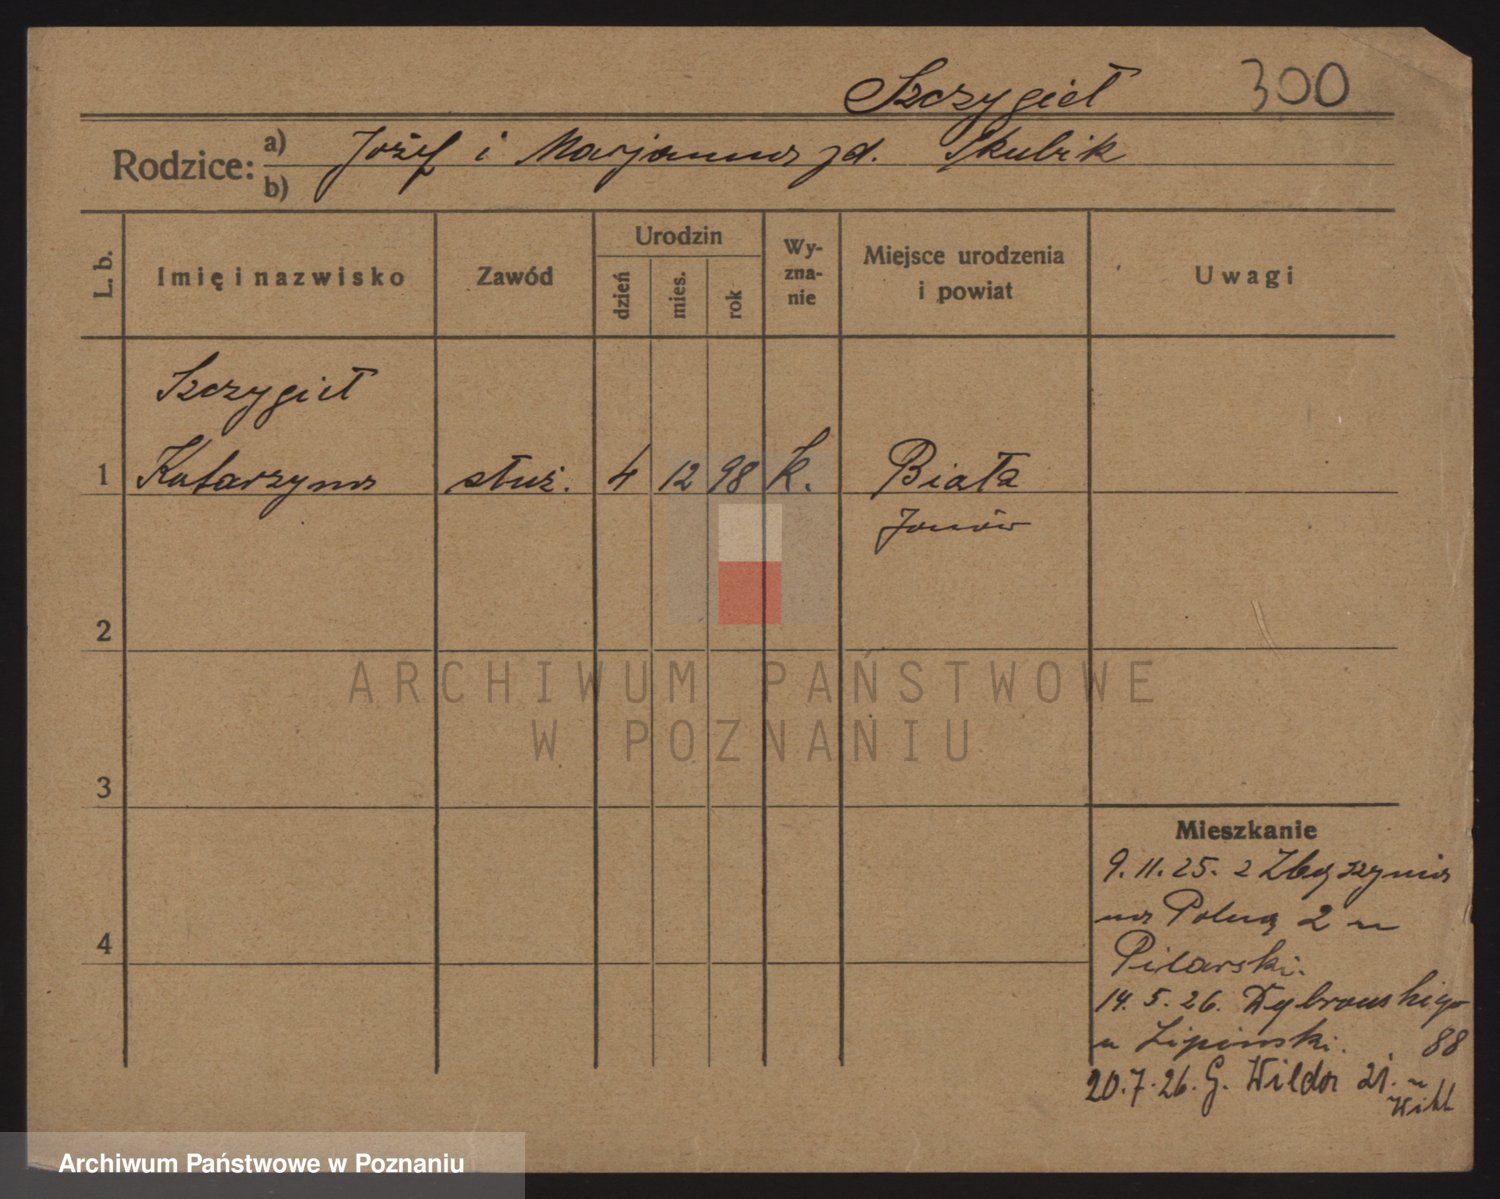 Szczygieł 300
Rodzice: a) Józef i Marjanna zd. Skubik
b)
L. b. Imię i nazwisko Zawód Urodzin dzień mies. rok Wy-zna-nie Miejsce urodzenia i powiat Uwagi
Szczygieł
1 Katarzyna służ. 4 12 98 k. Biała
Janów
2
ARCHIWUM PAŃSTWOWE
W POZNANIU
3
Mieszkanie
9.11.25. z Zbąszynia
na Polną 2 u
4
Pilarski.
14.5.26. Dąbrowskiego
u Lipinski. 88
20.7.26. G. Wilda 21. u
Archiwum Państwowe w Poznaniu